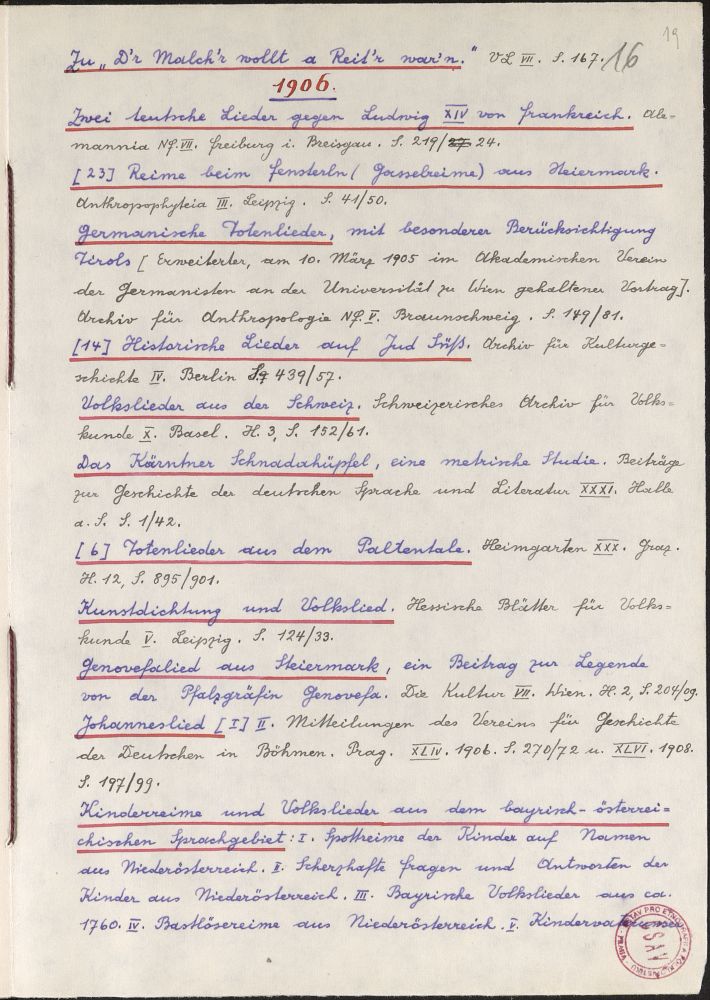 19
Zu „D'r Malch'r wollt a Reit'r war'n." VL VII. S. 167. 16
1906.
Zwei teutsche Lieder gegen Ludwig XIV von Frankreich. Ale=
mannia NF. VII. Freiburg i. Breisgau. S. 219/27 24.
[23] Reime beim Fensterln (Gasselreime) aus Steiermark.
Anthropophyteia III. Leipzig. S. 41/50.
Germanische Totenlieder, mit besonderer Berücksichtigung
Tirols [Erweiterter, am 10. März 1905 im Akademischen Verein
der Germanisten an der Universität zu Wien gehaltener Vortrag].
Archiv für Anthropologie NF. V. Braunschweig. S. 149/81.
[14] Historische Lieder auf Jud Süß. Archiv für Kulturge=
schichte IV. Berlin S. 439/57.
Volkslieder aus der Schweiz. Schweizerisches Archiv für Volks=
kunde X. Basel. H. 3, S. 152/61.
Das Kärntner Schnadahüpfel, eine metrische Studie. Beiträge
zur Geschichte der deutschen Sprache und Literatur XXXI. Halle
a. S. S. 1/42.
[6] Totenlieder aus dem Paltentale. Heimgarten XXX. Graz.
H. 12, S. 895/901.
Kunstdichtung und Volkslied. Hessische Blätter für Volks=
kunde V. Leipzig. S. 124/33.
Genovefalied aus Steiermark, ein Beitrag zur Legende
von der Pfalzgräfin Genovefa. Die Kultur VII. Wien. H. 2, S. 204/09.
Johanneslied [I] II. Mitteilungen des Vereins für Geschichte
der Deutschen in Böhmen. Prag. XLIV. 1906. S. 270/72 u. XLVI. 1908.
S. 197/99.
Kinderreime und Volkslieder aus dem bayrisch-österrei=
chischen Sprachgebiet: I. Spottreime der Kinder auf Namen
aus Niederösterreich. II. Scherzhafte Fragen und Antworten der
Kinder aus Niederösterreich. III. Bayrische Volkslieder aus ca.
1760. IV. Bastlösereime aus Niederösterreich. V.
ČSAV